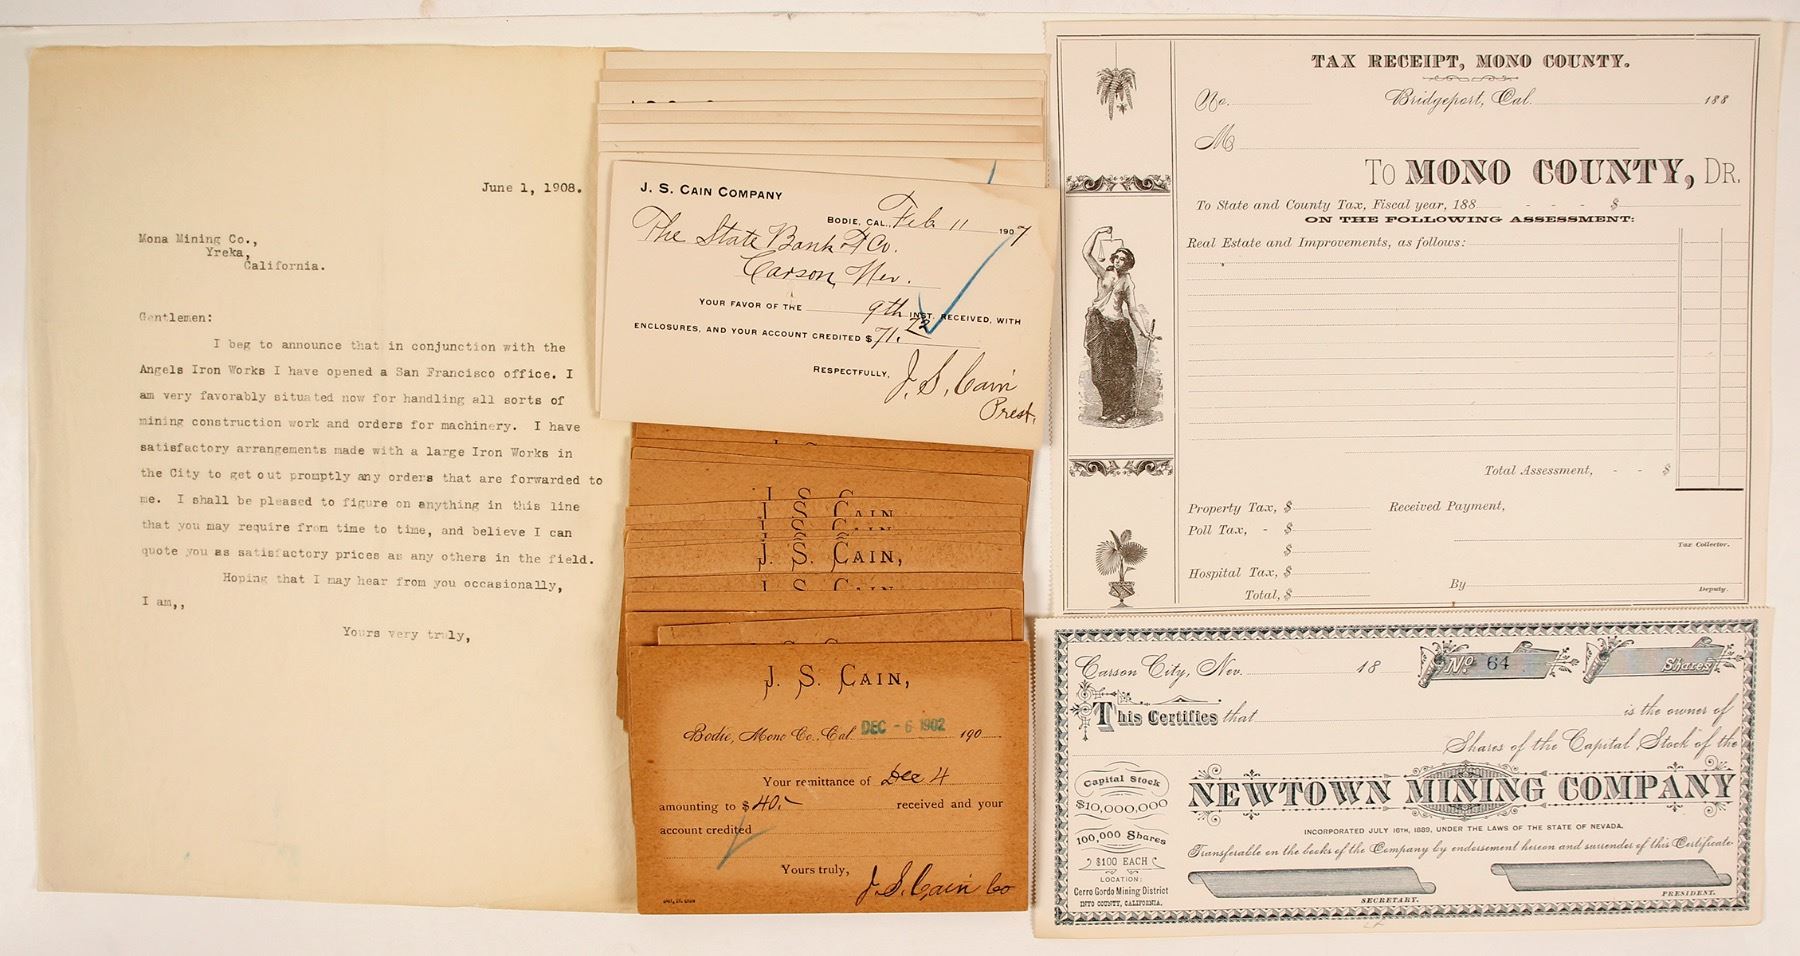 June 1, 1908.
Mona Mining Co.,
Yreka,
California.
Gentlemen:
I beg to announce that in conjunction with the
Angels Iron Works I have opened a San Francisco office. I
am very favorably situated now for handling all sorts of
mining construction work and orders for machinery. I have
satisfactory arrangements made with a large Iron Works in
the City to get out promptly any orders that are forwarded to
me. I shall be pleased to figure on anything in this line
that you may require from time to time, and believe I can
quote you as satisfactory prices as any others in the field.
Hoping that I may hear from you occasionally,
I am,,
Yours very truly,
J. S. CAIN COMPANY
BODIE, CAL., Feb 11 1907
The State Bank & T Co.
Carson, Nev.
YOUR FAVOR OF THE 9th INST. RECEIVED, WITH
ENCLOSURES, AND YOUR ACCOUNT CREDITED $71.72
RESPECTFULLY,
J. S. Cain
Prest.
J S C
J S CAIN
J S CAIN
J. S. CAIN,
J S CAIN
J. S. CAIN,
Bodie, Mono Co., Cal. DEC - 6 1902 190
Your remittance of Dec 4
amounting to $40.- received and your
account credited
Yours truly,
J. S. Cain Co
TAX RECEIPT, MONO COUNTY.
No. Bridgeport, Cal. 188
M
TO MONO COUNTY, DR.
To State and County Tax, Fiscal year, 188 - - - $
ON THE FOLLOWING ASSESSMENT:
Real Estate and Improvements, as follows:
Total Assessment, - - $
Property Tax, $ Received Payment,
Poll Tax, - $
$ Tax Collector.
Hospital Tax, $
Total, $ By Deputy.
Carson City, Nev. 18 No 64 Shares
This Certifies that is the owner of
Shares of the Capital Stock of the
NEWTOWN MINING COMPANY
INCORPORATED JULY 16TH, 1889, UNDER THE LAWS OF THE STATE OF NEVADA.
Transferable on the books of the Company by endorsement hereon and surrender of this Certificate.
Capital Stock
$10,000,000
100,000 Shares
$100 EACH
LOCATION:
Cerro Gordo Mining District
INYO COUNTY, CALIFORNIA.
SECRETARY.
PRESIDENT.